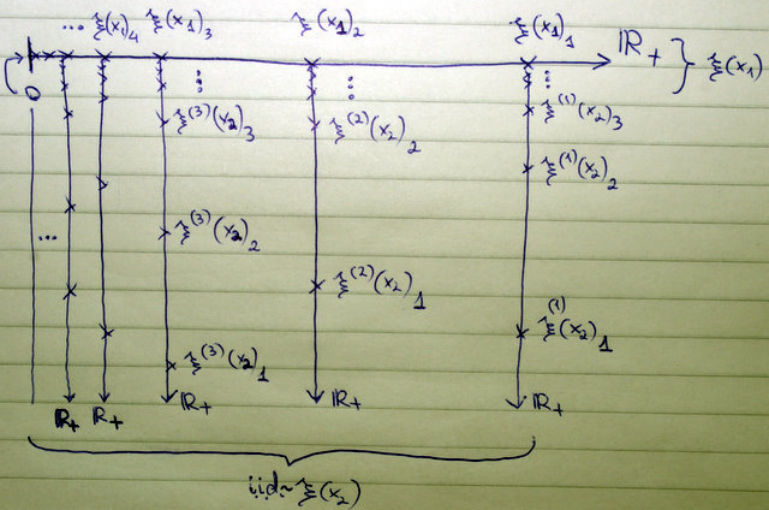 ... ξ(x₁)₄ ξ(x₁)₃ ξ(x₁)₂ ξ(x₁)₁ ℝ₊ } ξ(x₁)
0
ξ⁽³⁾(x₂)₃ ξ⁽²⁾(x₂)₂ ξ⁽¹⁾(x₂)₃
ξ⁽¹⁾(x₂)₂
... ξ⁽³⁾(x₂)₂
ξ⁽²⁾(x₂)₁
ξ⁽¹⁾(x₂)₁
ξ⁽³⁾(x₂)₁
ℝ₊ ℝ₊ ℝ₊ ℝ₊ ℝ₊
i.i.d~ξ(x₂)